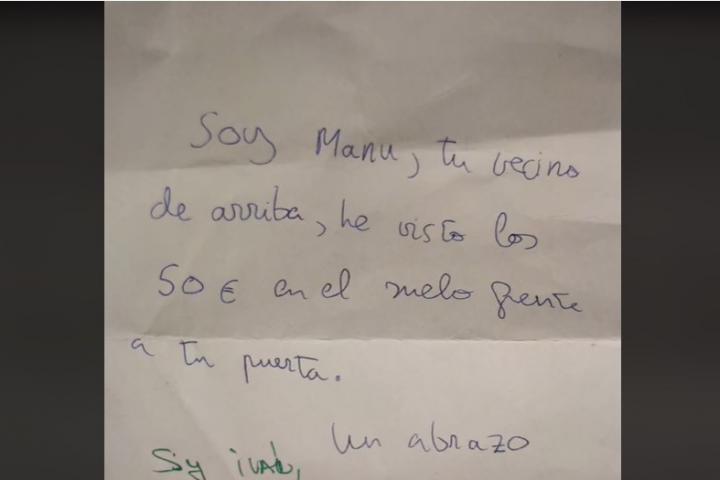 Soy Manu, tu vecino
de arriba, he visto los
50 € en el suelo frente
a tu puerta.
Un abrazo
Sy iVAN,